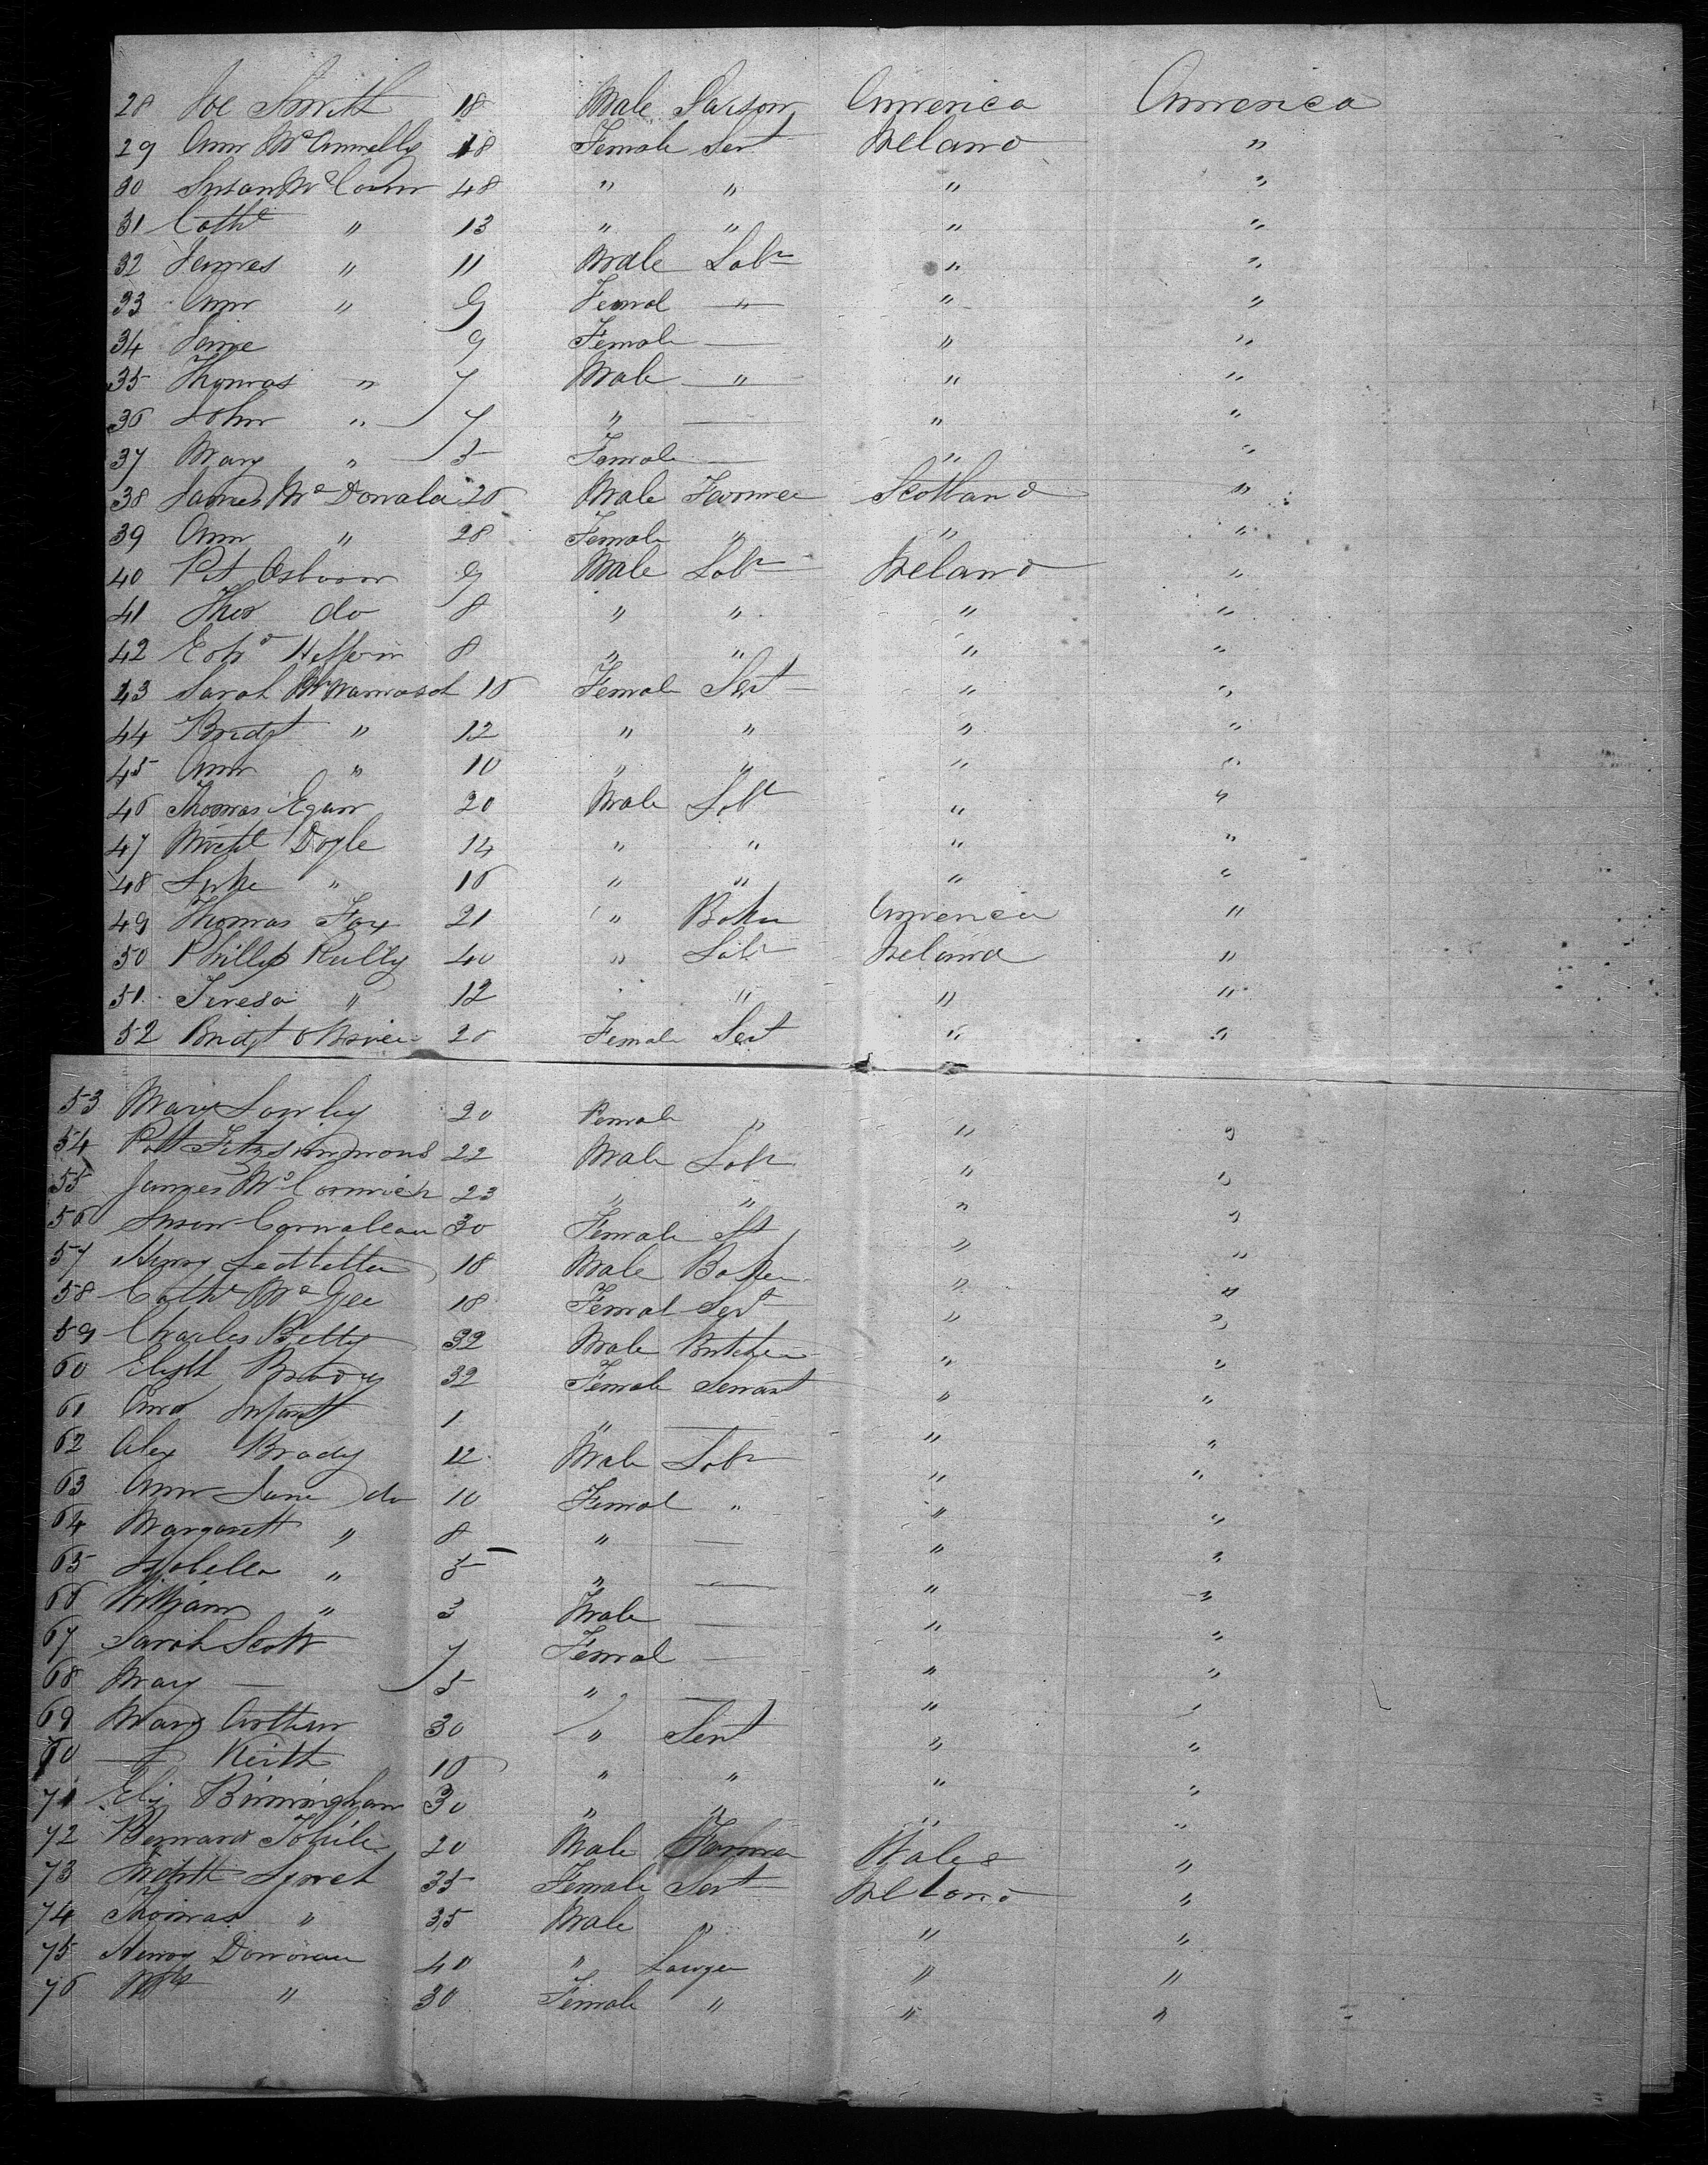 28 Joe Smith 18 Male America America
29 Ann McAnnelly 18 Female Sert Ireland "
30 Susan McCann 48 " " " "
31 Cathe " 13 " " " "
32 James " 11 Male Labr " "
33 Ann " 9 Femal " " "
34 Jane 9 Female — " "
35 Thomas " 7 Male " " "
36 John " 7 " — " "
37 Mary " 5 Female — " "
38 James McDonald 26 Male Farmer Scotland "
39 Ann " 28 Female " " "
40 Pat Osborn 9 Male Labr Ireland "
41 Thos do 8 " " " "
42 Edwd Heffern 8 " " " "
43 Sarah 16 Female Sert " "
44 Bridgt " 12 " " " "
45 Ann " 10 " " " "
46 Thomas Egan 20 Male Labr " "
47 Michl Doyle 14 " " " "
48 Luke " 16 " " " "
49 Thomas Fox 21 " Baker America "
50 Phillip Reilly 40 " Labr Ireland "
51 Teresa " 12 " " "
52 Bridgt O Brien 20 Female Sert " "
53 Mary 20 Female " " "
54 Patt Fitzsimmons 22 Male Labr " "
55 James McCormick 23 " " " "
56 Susan 30 Female St " "
57 Henry Ledbetter 18 Male Baker " "
58 Cathe McGee 18 Femal Sert " "
59 Charles Betty 32 Male Butcher " "
60 Elizth Brady 32 Female Servant " "
61 And Infant 1 " — " "
62 Alex Brady 12 Male Labr " "
63 Ann Jane do 10 Femal " " "
64 Margarett " 8 " — " "
65 Isabella " 5 " — " "
66 William " 3 Male — " "
67 Sarah Scott 7 Femal — " "
68 Mary — 5 " — " "
69 Mary Arthur 30 " Sert " "
70 — Keith 16 " " " "
71 Eliz Birmingham 30 " " " "
72 Bernard 20 Male Farmer Wales "
73 35 Female Sert Ireland "
74 Thomas " 35 Male " " "
75 Henry Donovan 40 " Lawyer " "
76 Mrs " 30 Female " " "